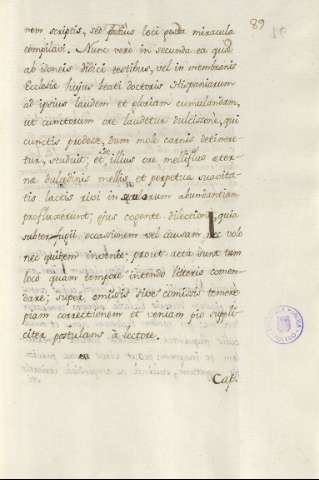 89
nem scriptis, sed plurius loci pauca miracula
compilavi. Nunc verò in secunda ea quæ
ab idoneis didici testibus, vel in membranis
Ecclesiæ hujus beati doctoris Hispaniarum
ad ipsius laudem et gloriam cumulandam,
ut cunctorum ore laudetur dulcissone, qui
cunctis prodesse, dum mole carnis detinere-
tur, studuit; et, illius ore mellifluo æter-
næ dulcedinis mellis, et perpetuæ suavita-
tis lactis rivi in abundantiam
profluxerunt, ejus cogente dilectione, quia
subterfugii occassionem vel causam nec volo
nec quidem invenio: prout acta sunt tam
loco quam tempore intendo litteris comen-
dare; super omissis sive comissis temere
piam correctionem et veniam pio suppli-
citer postulans à lectore.
Cap.